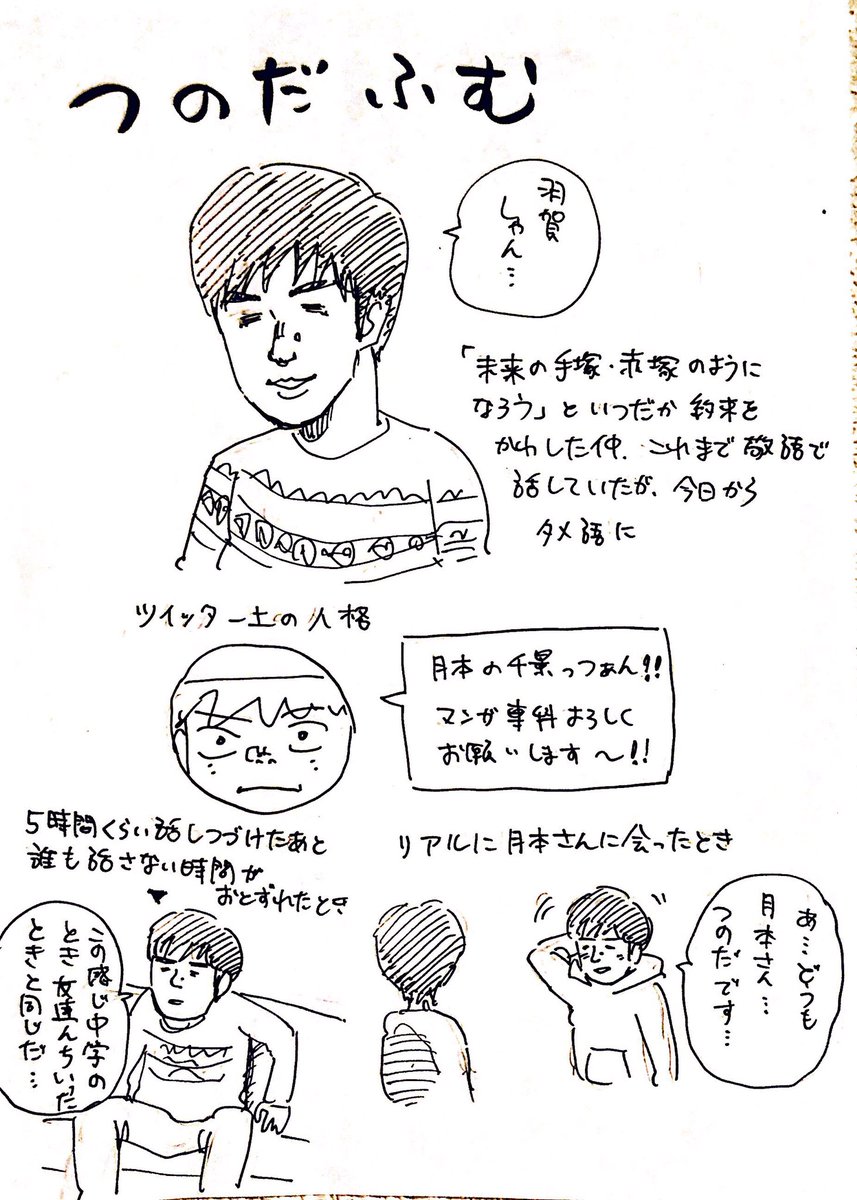 つのだふむ
羽賀
しゃん…
「未来の手塚・赤塚のように
なろう」といつだか約束を
かわした仲。これまで敬語で
話していたが、今日から
タメ語に
ツイッター上の人格
月本の千景っつぁん!!
マンガ専科よろしく
お願いします〜!!
5時間くらい話しつづけたあと
誰も話さない時間が
おとずれたとき
この感じ中学の
とき友達んちいった
ときと同じだ…
リアルに月本さんに会ったとき
あ…どうも
月本さん…
つのだです…